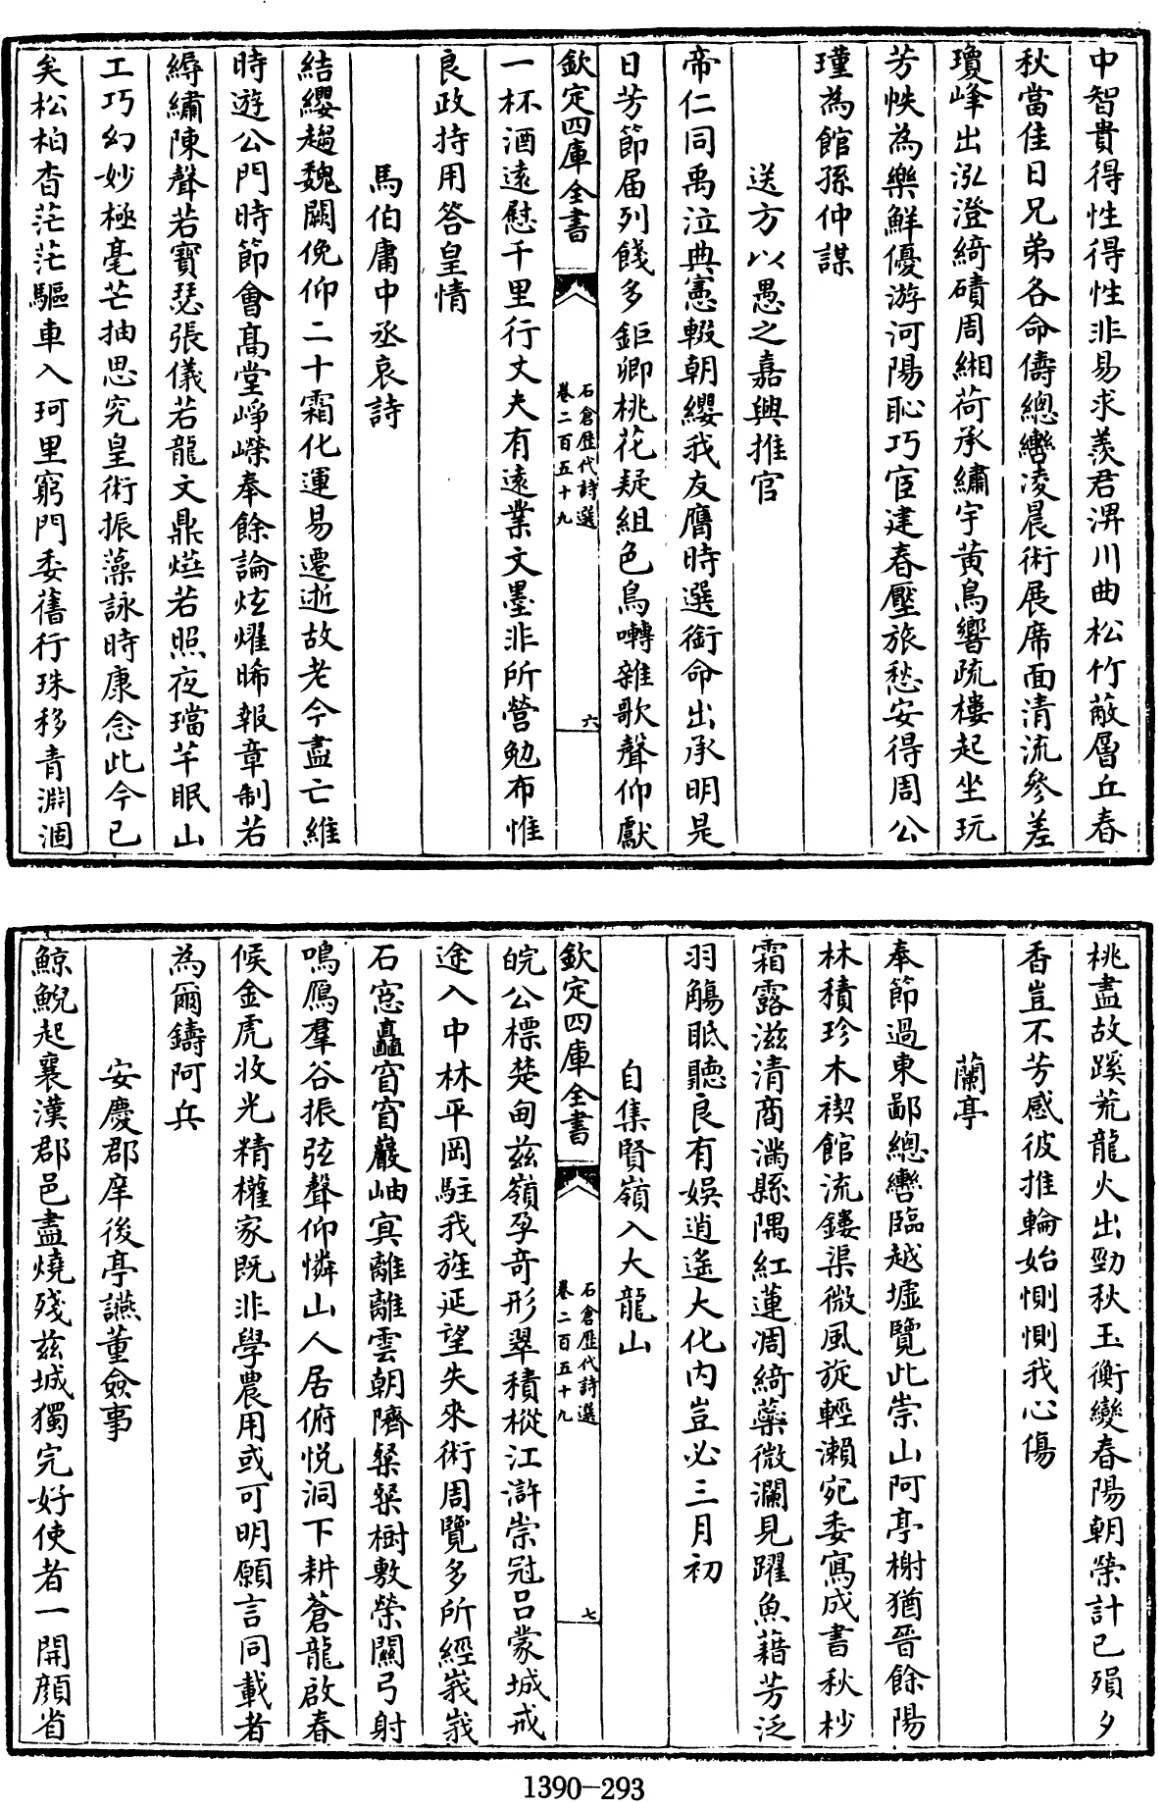 中智貴得性得性非易求羨君淠川曲松竹蔽層丘春
秋當佳日兄弟各命儔總轡凌晨術展席面清流參差
瓊峰出泓澄綺磧周緗荷承繡宇黄鳥響疏樓起坐玩
芳帙為樂鮮優游河陽恥巧宦建春壓旅愁安得周公
瑾為館孫仲謀
送方以愚之嘉興推官
帝仁同禹泣典憲輟朝纓我友膺時選銜命出承明是
日芳節届列餞多鉅卿桃花疑組色鳥囀雜歌聲仰獻
欽定四庫全書
石倉歷代詩選
卷二百五十九
六
一杯酒遠慰千里行丈夫有遠業文墨非所營勉布惟
良政持用答皇情
馬伯庸中丞哀詩
結纓趨魏闕俛仰二十霜化運易遷逝故老今盡亡維
時遊公門時節會髙堂崢嶸奉餘論炫燿睎報章制若
縟繡陳聲若寳瑟張儀若龍文鼎㷳若照夜璫芊眠山
工巧幻妙極毫芒抽思究皇術振藻詠時康念此今已
矣松柏杳茫茫驅車入珂里窮門委舊行珠移青淵涸
桃盡故蹊荒龍火出勁秋玉衡變春陽朝榮計已殞夕
香豈不芳感彼推輪始惻惻我心傷
蘭亭
奉節過東鄙總轡臨越墟覽此崇山阿亭榭猶晉餘陽
林積珍木禊館流鏤渠微風旋輕瀨宛委寫成書秋杪
霜露滋清商滿縣隅紅蓮凋綺藥微瀾見躍魚藉芳泛
羽觴眂聽良有娛逍遙大化内豈必三月初
自集賢嶺入大龍山
欽定四庫全書
石倉歷代詩選
卷二百五十九
七
皖公標楚甸兹嶺孕奇形翠積樅江滸崇冠呂蒙城戒
途入中林平岡駐我旌延望失來術周覽多所經峩峩
石窓矗窅窅巖岫㝠離離雲朝隮粲粲樹敷榮關弓射
鳴鴈羣谷振弦聲仰憐山人居俯悦洞下耕蒼龍啟春
候金虎收光精權家既非學農用或可明願言同載者
為爾鑄阿兵
安慶郡庠後亭讌董僉事
鯨鯢起襄漢郡邑盡燒殘兹城獨完好使者一開顔省
1390-293